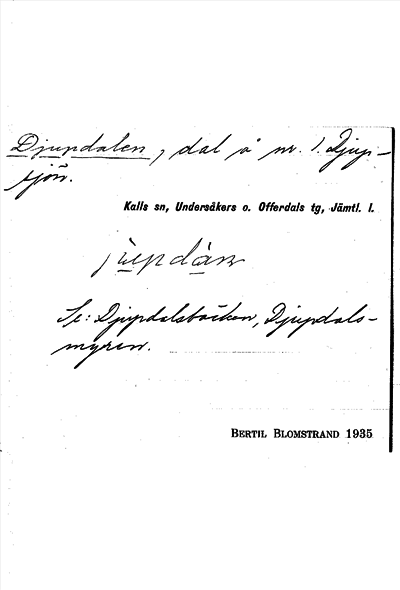 Djupdalen, dal å nr. 1. Djup-
sjön.
Kalls sn, Undersåkers o. Offerdals tg, Jämtl. l.
jùpdàn
Se: Djupdalsbäcken, Djupdals-
myren.
BERTIL BLOMSTRAND 1935